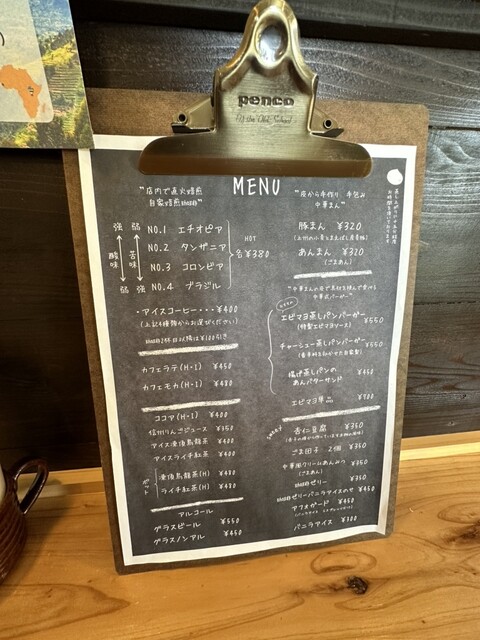 penco
MENU
"店内で直火焙煎
自家焙煎珈琲"
強 弱
酸味 苦味
弱 強
NO.1 エチオピア
NO.2 タンザニア
NO.3 コロンビア
NO.4 ブラジル
HOT
各¥380
・アイスコーヒー・・・¥400
(上記4種類からお選びください)
珈琲2杯目以降は¥100引き
カフェラテ(H・I) ¥450
カフェモカ(H・I) ¥480
ココア(H・I) ¥400
信州りんごジュース ¥350
アイス凍頂烏龍茶 ¥400
アイスライチ紅茶 ¥400
ポット
凍頂烏龍茶(H) ¥480
ライチ紅茶(H) ¥480
アルコール
グラスビール ¥550
グラスノンアル ¥450
"皮から手作り 手包み
中華まん"
豚まん ¥320
あんまん ¥320
(ごまあん)
エビマヨ蒸しパンバーガー ¥550
(特製エビマヨソース)
チャーシュー蒸しパンバーガー ¥550
揚げ蒸しパンの
あんバターサンド ¥450
エビマヨ単品 ¥700
杏仁豆腐 ¥350
ごま団子 2個 ¥350
中華風クリームあんみつ ¥350
(ごまあん)
珈琲ゼリー ¥350
珈琲ゼリーバニラアイスのせ ¥450
アフォガード ¥450
バニラアイス ¥300